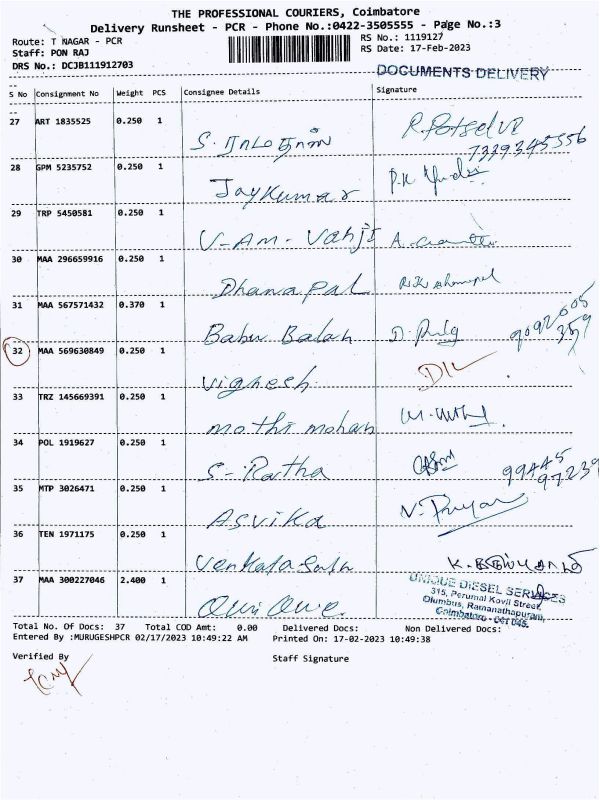 THE PROFESSIONAL COURIERS, Coimbatore
Delivery Runsheet - PCR - Phone No.:0422-3505555 - Page No.:3
Route: T NAGAR - PCR
RS No.: 1119127
Staff: PON RAJ
RS Date: 17-Feb-2023
DRS No.: DCJB111912703
DOCUMENTS DELIVERY
S No Consignment No Weight PCS Consignee Details Signature
27 ART 1835525 0.250 1
7339345556
28 GPM 5235752 0.250 1
Jaykumar
29 TRP 5450581 0.250 1
V-Am-Vanji
30 MAA 296659916 0.250 1
Dhanapal
31 MAA 567571432 0.370 1
Babu Balan
32 MAA 569630849 0.250 1
Vignesh
33 TRZ 145669391 0.250 1
mothi mohan
34 POL 1919627 0.250 1
S-Ratha
35 MTP 3026471 0.250 1
Asvika
36 TEN 1971175 0.250 1
37 MAA 300227046 2.400 1
UNIQUE DIESEL SERVICES
315, Perumal Kovil Street,
Olumbus, Ramanathapuram,
Coimbatore - 641 045.
Total No. Of Docs: 37 Total COD Amt: 0.00 Delivered Docs: Non Delivered Docs:
Entered By :MURUGESHPCR 02/17/2023 10:49:22 AM Printed On: 17-02-2023 10:49:38
Verified By Staff Signature